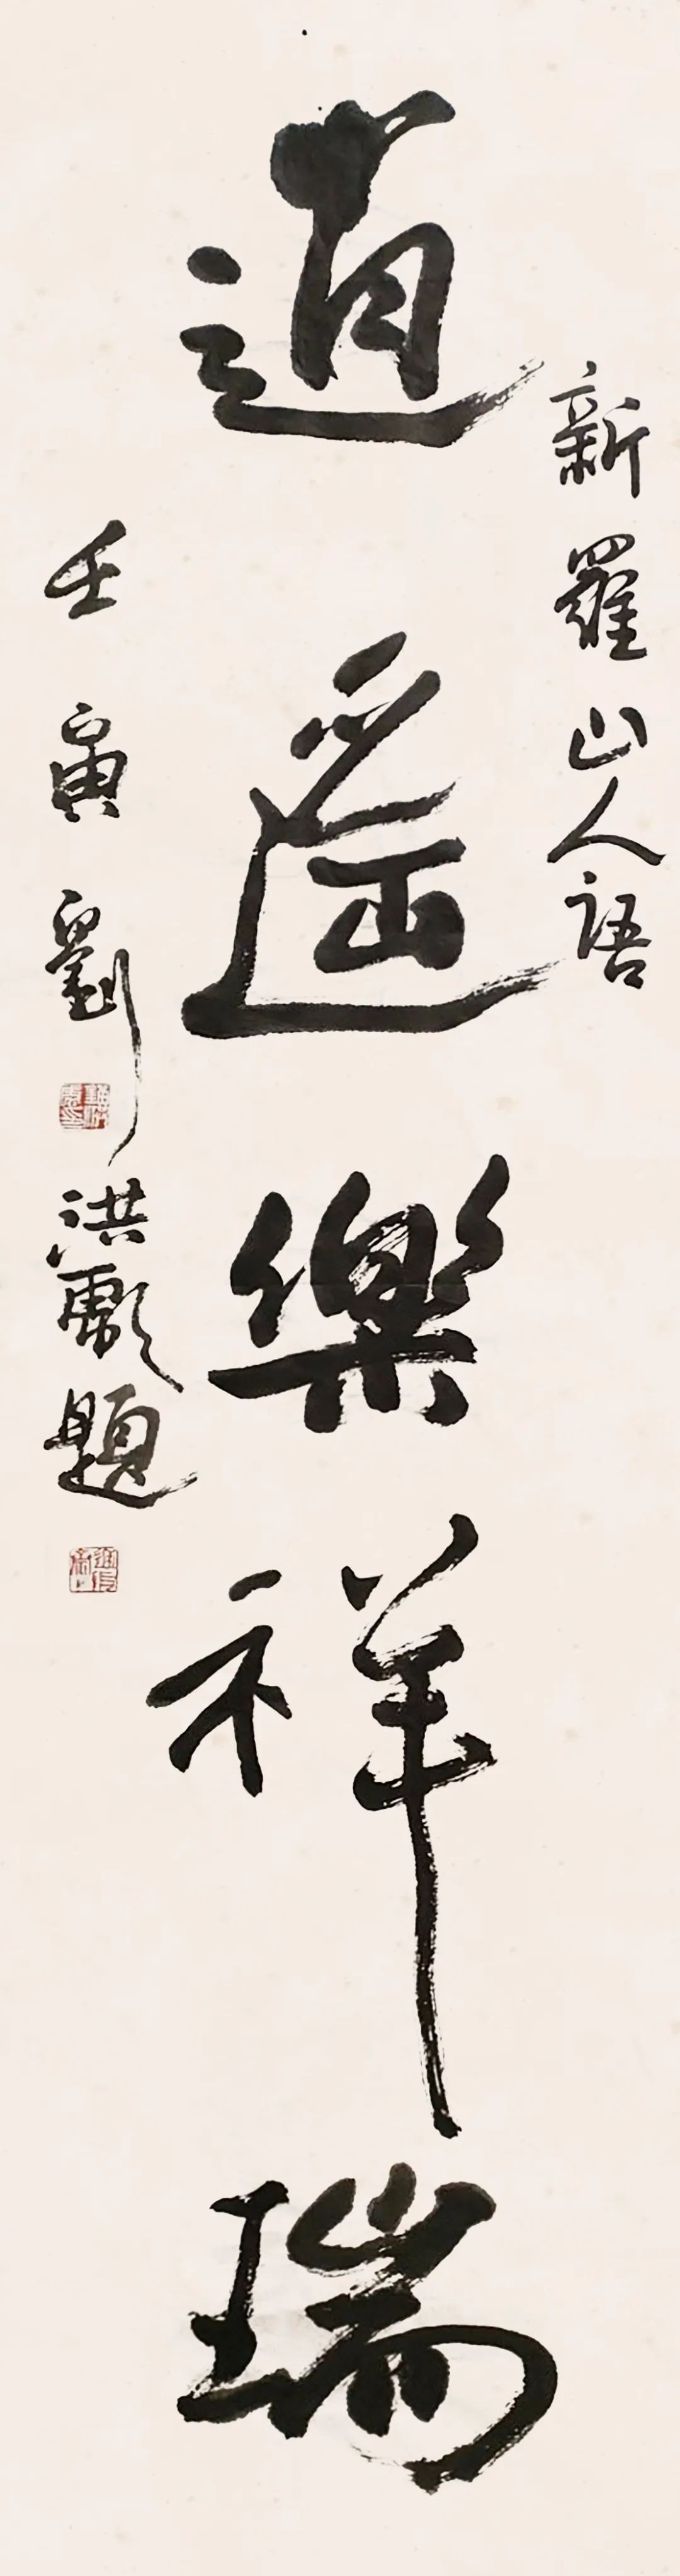 新羅山人語
逍遙樂祥瑞
壬寅劉洪彪題